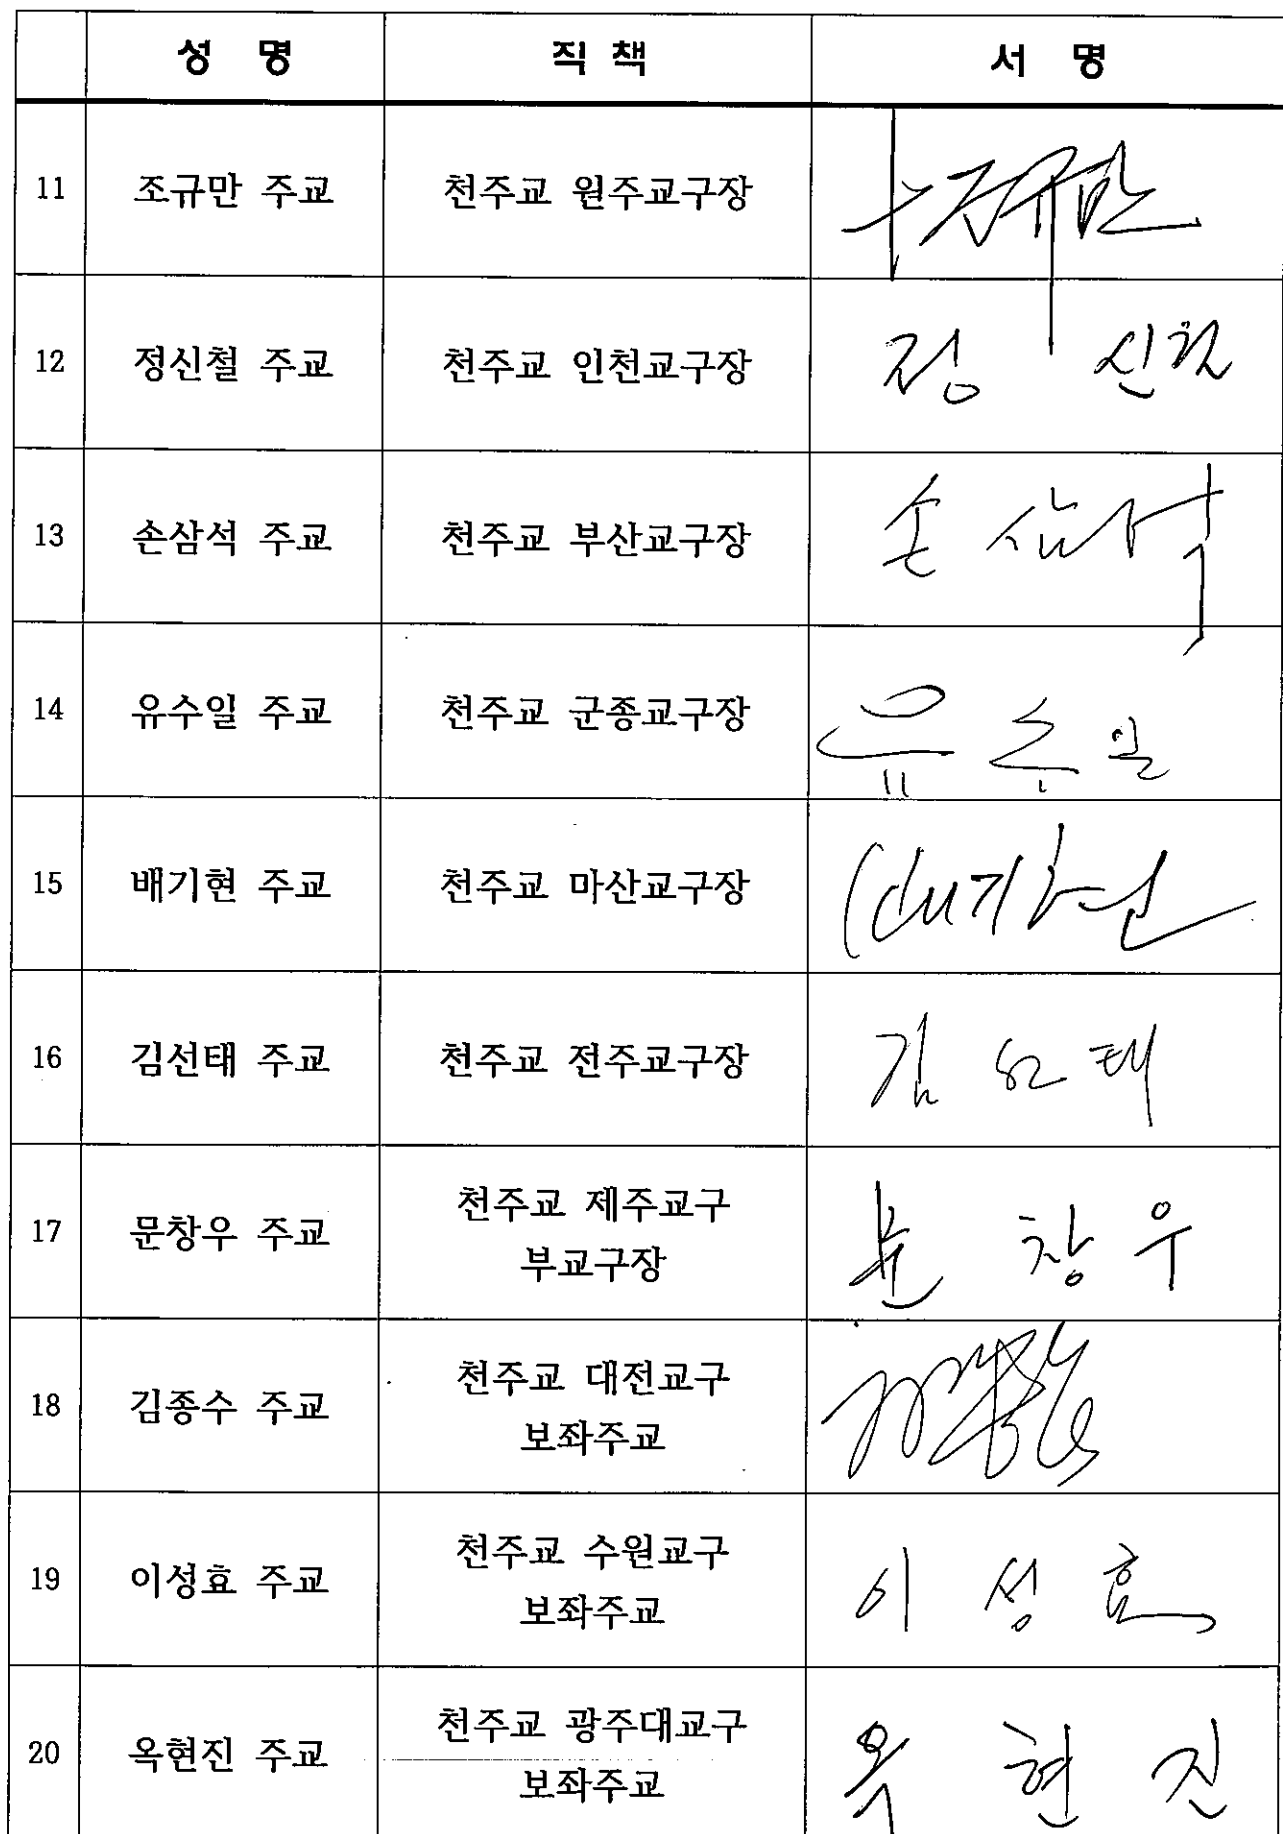 성 명 직 책 서 명
11 조규만 주교 천주교 원주교구장 조규만
12 정신철 주교 천주교 인천교구장 정 신철
13 손삼석 주교 천주교 부산교구장 손 삼석
14 유수일 주교 천주교 군종교구장 유 수 일
15 배기현 주교 천주교 마산교구장 배기현
16 김선태 주교 천주교 전주교구장 김 선 태
17 문창우 주교 천주교 제주교구
부교구장 문 창 우
18 김종수 주교 천주교 대전교구
보좌주교
19 이성효 주교 천주교 수원교구
보좌주교 이 성 효
20 옥현진 주교 천주교 광주대교구
보좌주교 옥 현 진